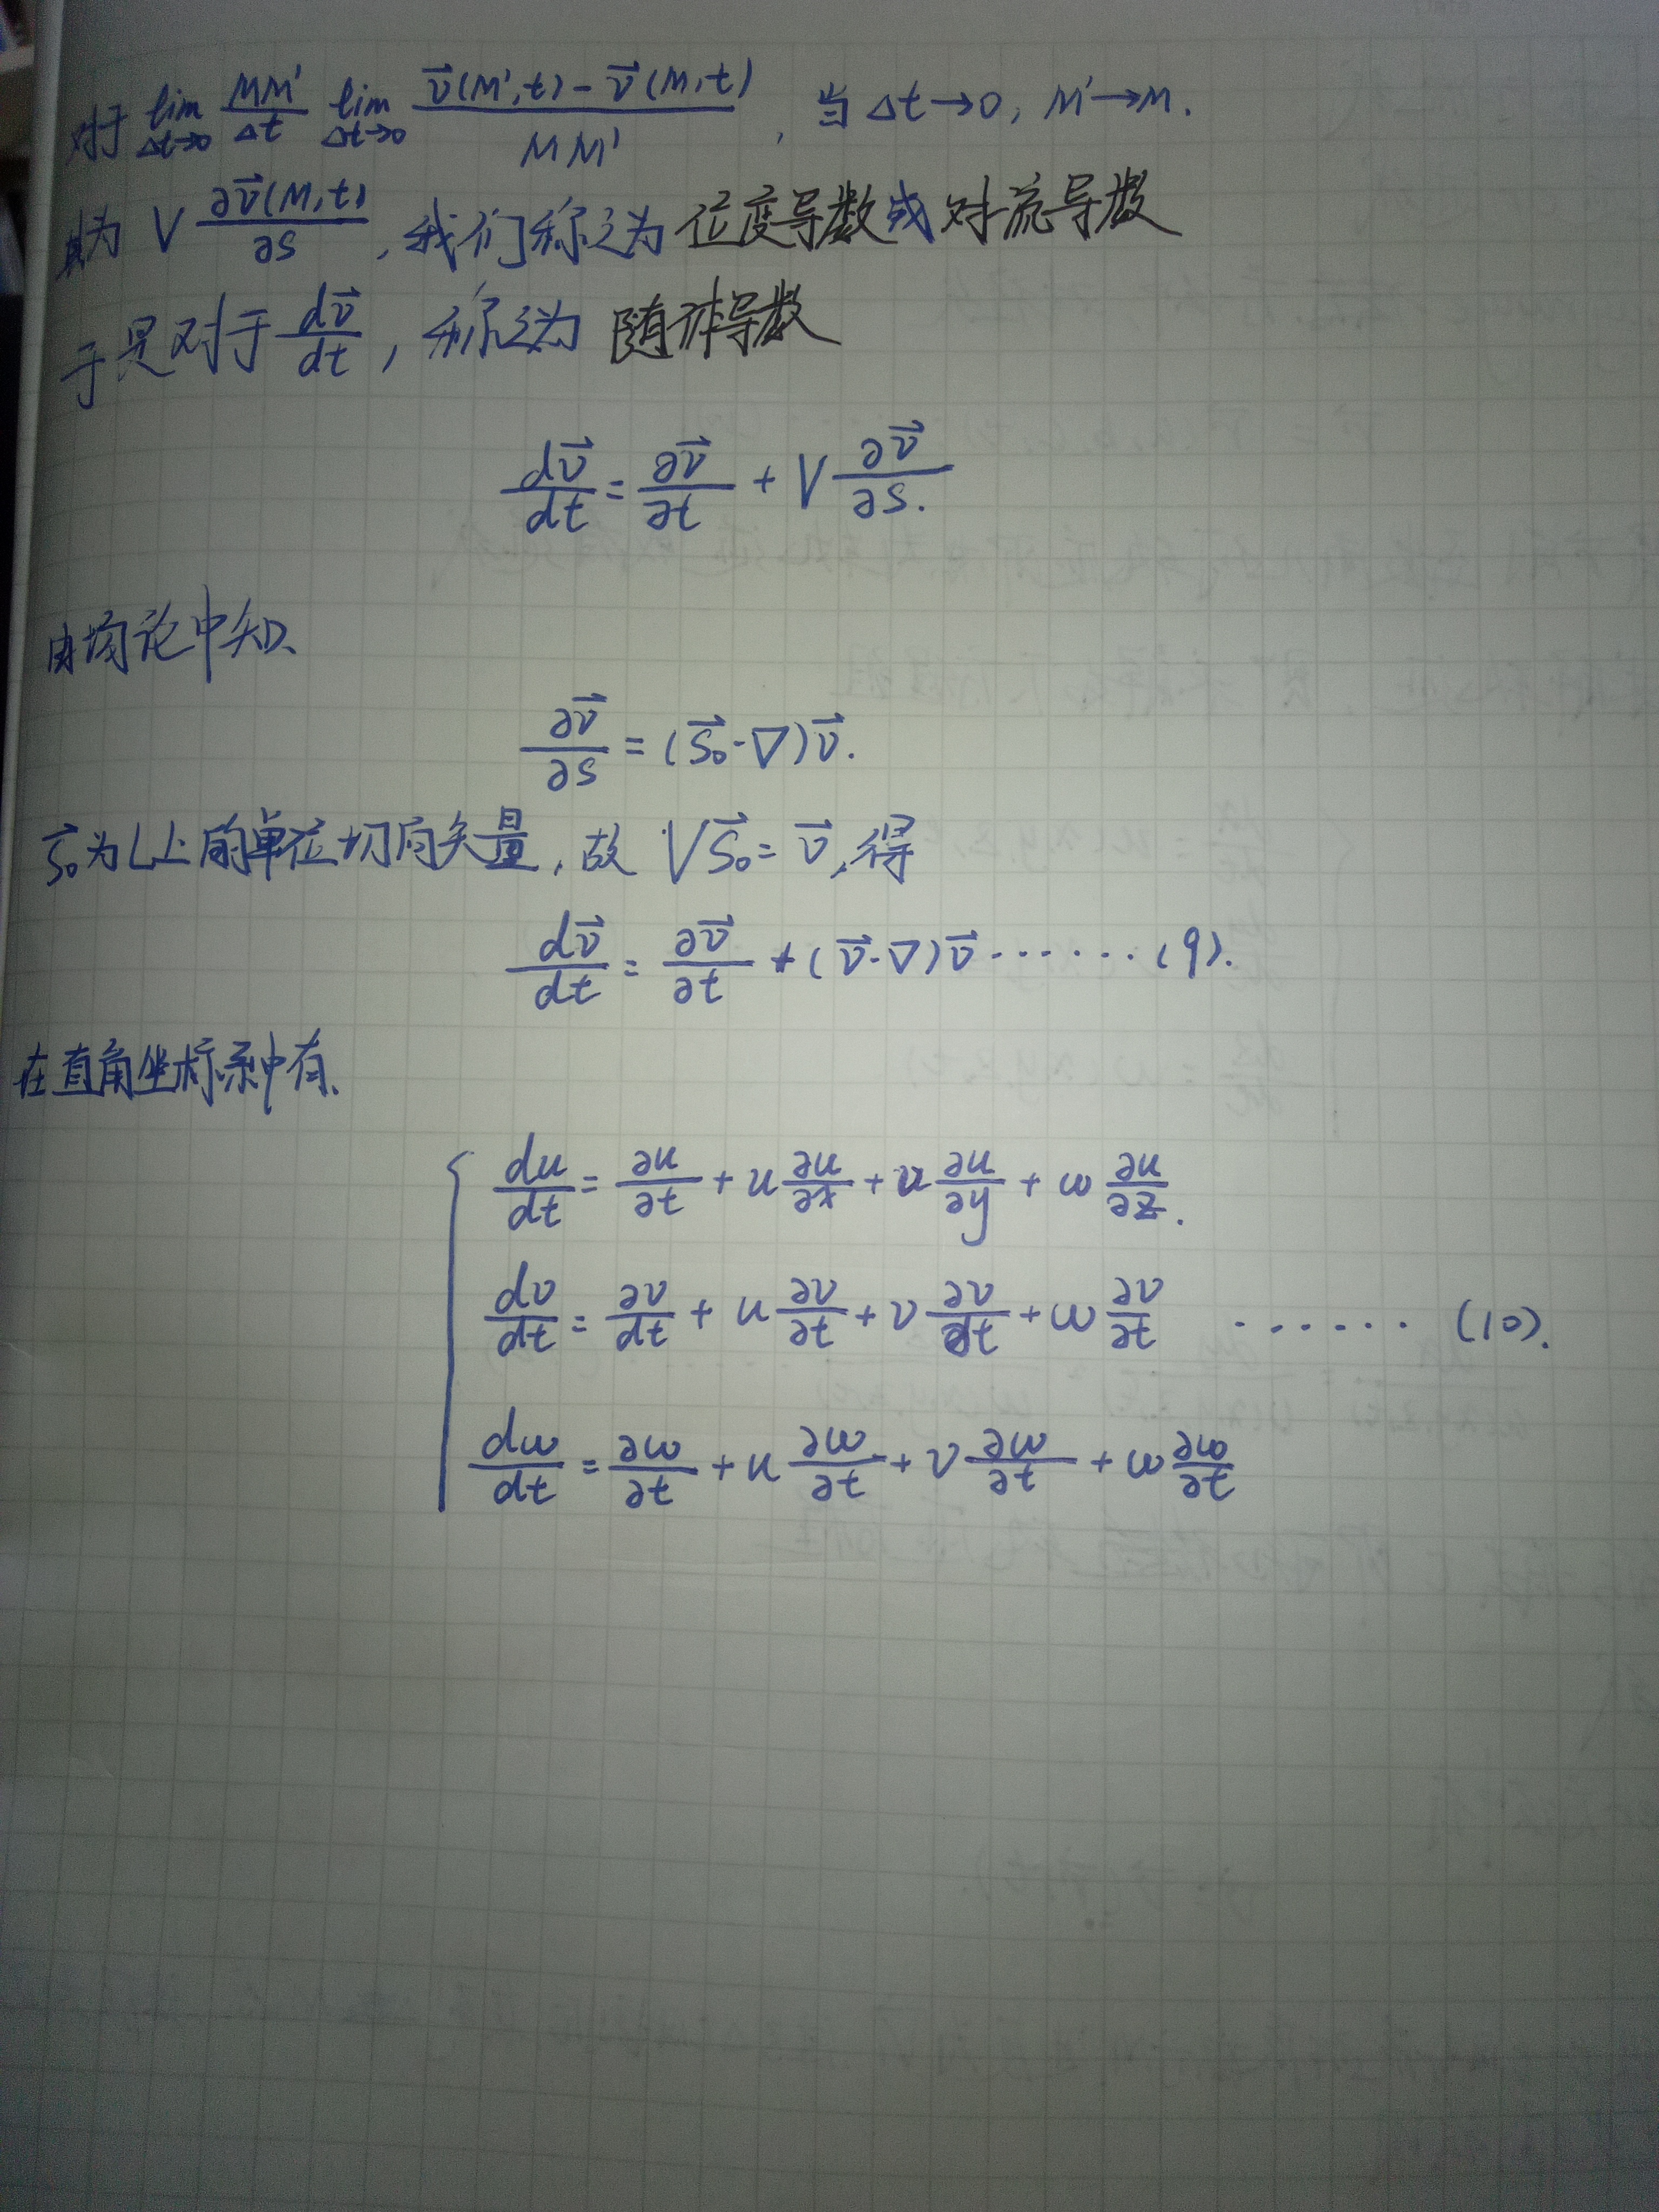 对于 lim Δt→0 MM'/Δt lim Δt→0 (v⃗(M',t) - v⃗(M,t))/MM' , 当 Δt→0, M'→M.
其为 V ∂v⃗(M,t)/∂s , 我们称之为位变导数或对流导数
于是对于 dv⃗/dt , 称之为 随体导数
dv⃗/dt = ∂v⃗/∂t + V ∂v⃗/∂s.
由场论中知、
∂v⃗/∂s = (s⃗₀·∇)v⃗.
s⃗₀为L上的单位切向矢量, 故 Vs⃗₀ = v⃗, 得
dv⃗/dt = ∂v⃗/∂t + (v⃗·∇)v⃗ ······ (9).
在直角坐标系中有、
du/dt = ∂u/∂t + u ∂u/∂x + v ∂u/∂y + w ∂u/∂z.
dv/dt = ∂v/dt + u ∂v/∂t + v ∂v/∂t + w ∂v/∂t ······ (10).
dw/dt = ∂w/∂t + u ∂w/∂t + v ∂w/∂t + w ∂w/∂t